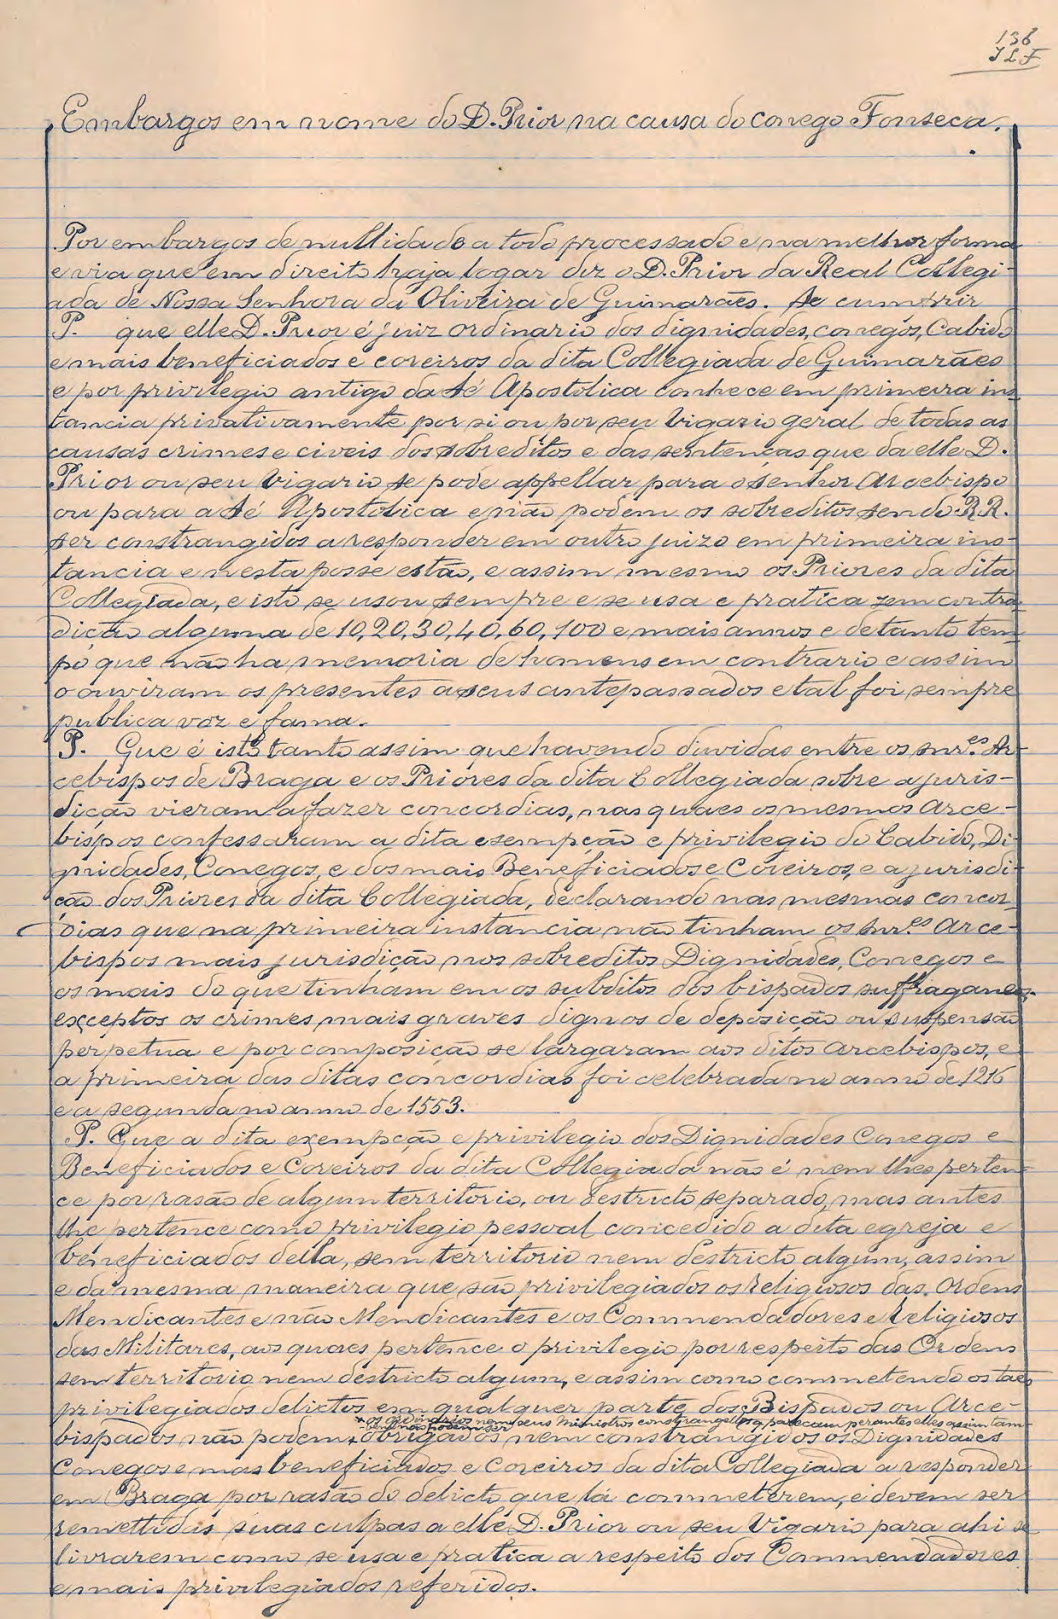 136
JLF
Embargos em nome do D. Prior na causa do conego Fonseca.
Por embargos de nullidade a todo processado e na melhor forma
e via que em direito haja logar diz o D. Prior da Real Collegi-
ada de Nossa Senhora da Oliveira de Guimarães. Se cumprir
P. que elle D. Prior é juiz ordinario dos dignidades, conegos, Cabido
e mais beneficiados e coreiros da dita Collegiada de Guimarães
e por privilegio antigo da Sé Apostolica conhece em primeira ins-
tancia privativamente por si ou por seu vigario geral de todas as
causas crimes e civeis dos sobreditos e das sentenças que da elle D.
Prior ou seu Vigario se pode appellar para o senhor Arcebispo
ou para a Sé Apostolica e não podem os sobreditos sendo RR.
ser constrangidos a responder em outro juizo em primeira ins-
tancia e nesta posse estão, e assim mesmo os Priores da dita
Collegiada, e isto se usou sempre e se usa e pratica sem contra-
dição alguma de 10, 20, 30, 40, 60, 100 e mais annos e de tanto tem-
po que não ha memoria de homens em contrario e assim
o ouviram os presentes a seus antepassados e tal foi sempre
publica voz e fama.
P. Que é isto tanto assim que havendo duvidas entre os snr.es Ar-
cebispos de Braga e os Priores da dita Collegiada sobre a juris-
dição vieram a fazer concordias, nas quaes os mesmos Arce-
bispos confessaram a dita esempção e privilegio do Cabido, Di-
gnidades, Conegos, e dos mais Beneficiados e Coreiros, e a jurisdi-
ção dos Priores da dita Collegiada, declarando nas mesmas concor-
dias que na primeira instancia não tinham os snr.es Arce-
bispos mais jurisdição nos sobreditos Dignidades, Conegos e
os mais do que tinham em os subditos dos bispados suffraganeos
exceptos os crimes mais graves dignos de deposição ou suspensão
perpetua e por composição se largaram aos ditos arcebispos, e
a primeira das ditas concordias foi celebrada no anno de 1216
e a segunda no anno de 1553.
P. Que a dita exempção e privilegio dos Dignidades Conegos e
Beneficiados e Coreiros da dita Collegiada não é nem lhes perten-
ce por rasão de algum territorio, ou destricto separado, mas antes
lhe pertence como privilegio pessoal concedido a dita egreja e
beneficiados della, sem territorio nem destricto algum, assim
e da mesma maneira que são privilegiados os religiosos das Ordens
Mendicantes e não Mendicantes e os Commendadores e Religiosos
das Militares, aos quaes pertence o privilegio por respeito das Ordens
sem territorio nem destricto algum, e assim como commetendo os taes
privilegiados delictos em qualquer parte dos Bispados ou Arce-
+ os ordinarios nem seus ministros constrangellos q. pareçam perante elles assim tam-
bem não podem ser
bispados não podem + obrigados nem constrangidos os Dignidades
Conegos e mas beneficiados e Coreiros da dita Collegiada a responder
em Braga por rasão do delicto que lá commeterem, e devem ser
remettidas suas culpas a elle D. Prior ou seu Vigario para ahi se
livrarem como se usa e pratica a respeito dos Commendadores
e mais privilegiados referidos.